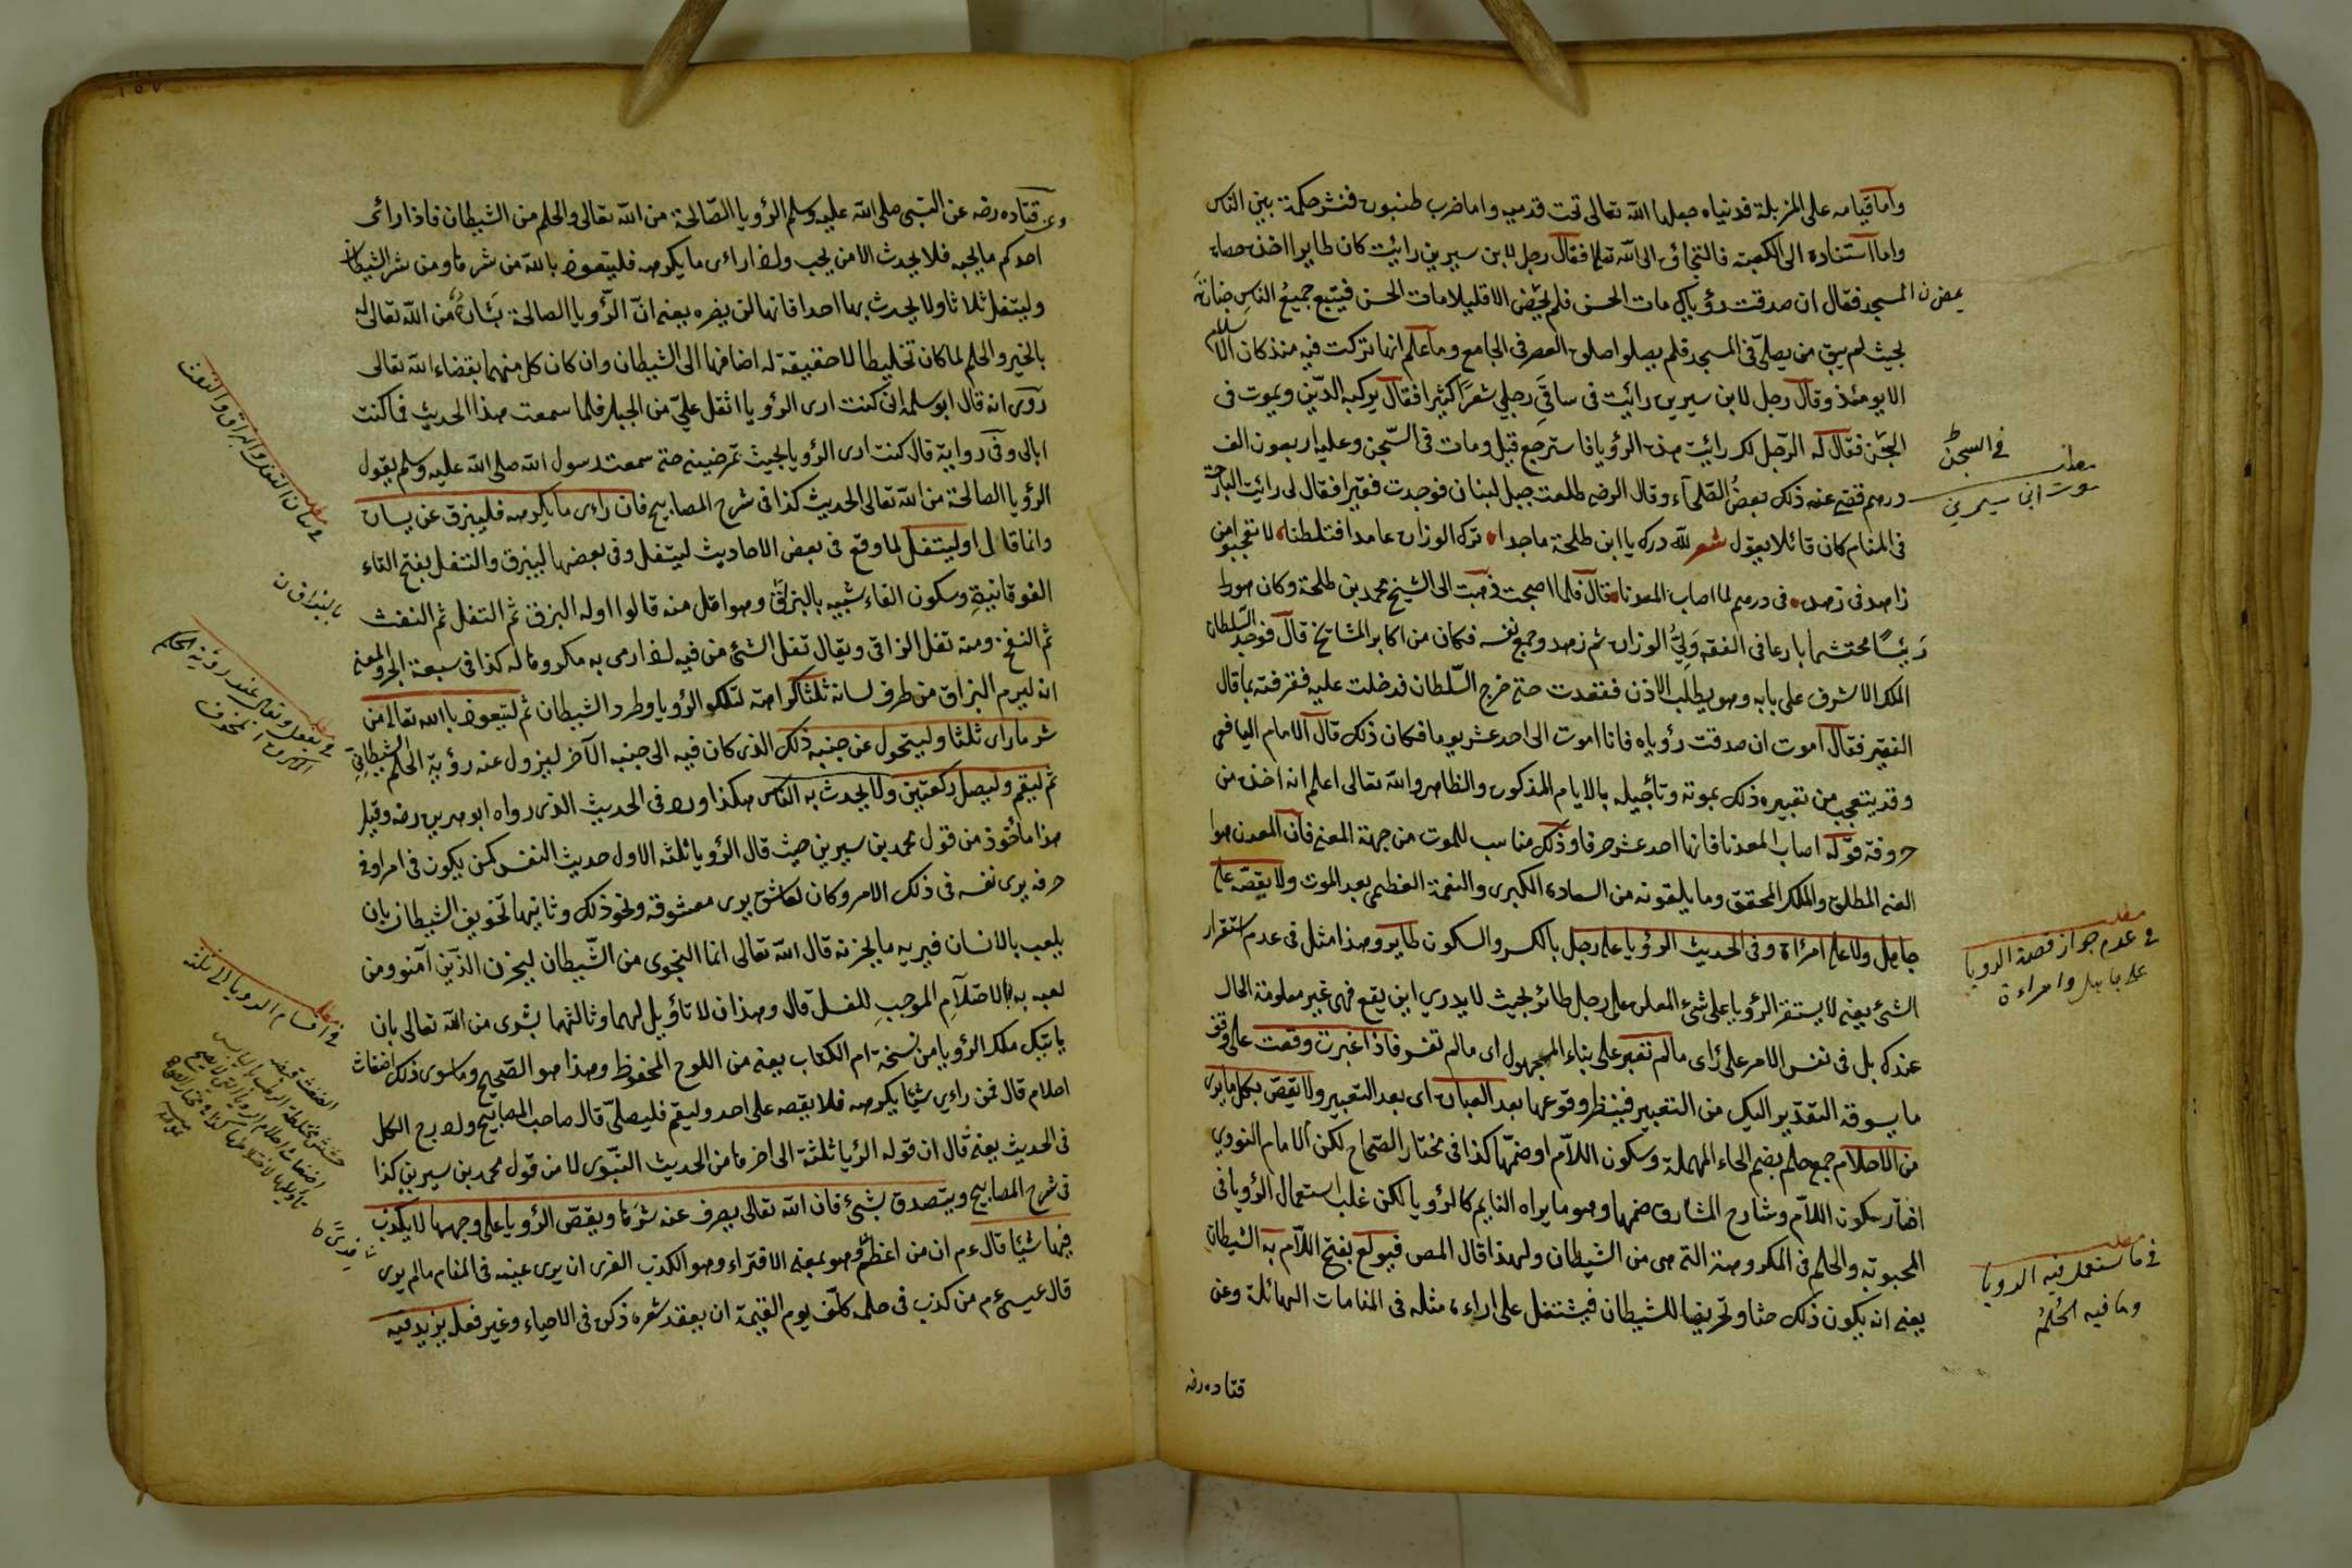 واما قيامه على المزبلة فدنياه جعلها الله تعالى تحت قدميه واما ضرب طنبوره فنشر حكمة بين الناس
واما استناده الى الكعبة فالتجاؤه الى الله تعالى فقال رجل لابن سيرين رائيت كان طايرا اخذ حصاه
المسجد فقال ان صدقت رؤياك مات الحسن فلم يمض الا قليلا مات الحسن فيتبع جميع الناس جنازته
بحيث لم يبق من يصلى فى المسجد فلم يصلوا صلوة العصر فى الجامع وما علم انها تركت فيه منذ كان الاسلام
الا يومئذ وقال رجل لابن سيرين رائيت فى ساقى رجلى شعرا كثيرا فقال يركبه الدين ويموت فى
السجن فقال له الرجل لك رائيت هذه الرؤيا فاسترجع قيل ومات فى السجن وعليه اربعون الف
درهم قضى عنه ذلك بعض الصلحاء وقال الرضى طلعت جبل لبنان فوجدت فقيرا فقال لى رائيت البارحة
فى المنام كان قائلا يقول شعر لله درك يا ابن طلحة ماجدا ترك الوزارة عامدا فتسلطنا لا تعجبوا من
زاهد فى زهده فى درهم لما اصاب المعدنا قال فلما اصبحت ذهبت الى الشيخ محمد بن طلحة وكان
رئيسا محتشما بارعا فى الفقه ولى الوزارة ثم زهد وجمع نفسه فكان من اكابر المشايخ قال فوجد السلطان
الملك الاشرف على بابه وهو يطلب الاذن فقعدت حتى خرج السلطان فدخلت عليه فعرفته بما قال
الفقير فقال اموت ان صدقت رؤياه فانا اموت الى احد عشر يوما فكان ذلك قال الامام اليافعى
وقد يتعجب من تعبيره ذلك بموته وتأجيله بالايام المذكورة والظاهر والله تعالى اعلم انه اخذه من
حروفه قوله اصاب المعدنا فانها احد عشر حرفا وذلك مناسب للموت من جهة المعنى فان المعدن هو
الغنى المطلق والملك المحقق وما يلقونه من السعادة الكبرى والنعمة العظيمى بعد الموت ولا يقصه على
جاهل ولا على امرأة وفى الحديث الرؤيا على رجل بالكسر والسكون طاير وهذا مثل فى عدم استقرار
الشئ يعنى لا يستقر الرؤيا على شئ المعلق على رجل طائر بحيث لا يدرى اين يقع فهى غير معلومة الحال
عندك بل فى نفس الامر على رأى مالم تعبر على بناء المجهول اى مالم تفسر فاذا عبرت وقعت على وفق
ما يسوقه التقدير اليك من التعبير فينظر وقوعها بعد العبارة اى بعد التعبير ولا يقص بكل ما يرى
من الاحلام جمع حلم بضم الحاء المهملة وسكون اللام او ضمها كذا فى مختار الصحاح لكن الامام النووى
اختار سكون اللام وشارح المشارق ضمها وهو ما يراه النايم كالرؤيا لكن غلب استعمال الرؤيا فى
المحبوبة والحلم فى المكروهة التى هى من الشيطان ولهذا قال المص فيولع بفتح اللام به الشيطان
يعنى انه يكون ذلك حثا وتحريضا للشيطان فيشتغل على اراءة مثله فى المنامات الهائلة وعن
قتاده رضه
فى السجن
مطلب
موت ابن سيرين
مطلب
فى عدم جواز قصة الرويا
على جاهل وامراءة
مطلب
فى ما ستعمل فيه الرويا
وما فيه الحلم
وعن قتاده رضه عن النبى صلى الله عليه وسلم الرؤيا الصالحة من الله تعالى والحلم من الشيطان فاذا رائى
احدكم ما يحبه فلا يحدث الا من يحب واذا راءى ما يكره فليتعوذ بالله من شرها ومن شر الشيطان
وليتفل ثلاثا ولا يحدث بها احدا فانها لن يضره يعنى ان الرؤيا الصالحة بشارة من الله تعالى له
بالخير والحلم لما كان تخليطا لا حقيقة له اضافها الى الشيطان وان كان كل منهما بقضاء الله تعالى
روى انه قال ابو سلمه ان كنت ارى الرؤيا اثقل على من الجبل فلما سمعت هذا الحديث فما كنت
ابالى وفى رواية قال كنت ارى الرؤيا بحيث تمرضينى حتى سمعت رسول الله صلى الله عليه وسلم يقول
الرؤيا الصالحة من الله تعالى الحديث كذا فى شرح المصابيح فان راءى ما يكرهه فليبزق عن يساره
وانما قال او ليتفل لما وقع فى بعض الاحاديث ليتفل وفى بعضها ليبزق والتفل بفتح التاء
الفوقانية وسكون الفاء شبيه بالبزق وهو اقل منه قالوا اوله البزق ثم التفل ثم النفث
ثم النفخ ومنه تفل الراقى ويقال تفل الشئ من فيه اذا رمى به مكروها له كذا فى سبعة ابحر والمعنى
انه ليرم البزاق من طرف لسانه ثلثا كراهة لتلك الرؤيا وطرد الشيطان ثم ليتعوذ بالله تعالى من
شر ما راى ثلثا وليتحول عن جنبه ذلك الذى كان فيه الى جنبه الآخر ليزول عنه رؤية الحلم الشيطانى
ثم ليقم وليصل ركعتين ولا يحدث به الناس هكذا ورد فى الحديث الذى رواه ابو هريره رضه وقيل
هذا مأخوذ من قول محمد بن سيرين حيث قال الرؤيا ثلثة الاول حديث النفس كمن يكون فى امر او فى
حرفه يرى نفسه فى ذلك الامر وكان لعاشق يرى معشوقه ونحو ذلك وثانيها تخويف الشيطان بان
يلعب بالانسان فيريه ما يحزنه قال الله تعالى انما النجوى من الشيطان ليحزن الذين آمنوا ومن
لعبه به بالاحتلام الموجب للغسل قال وهذان لا تأويل لهما وثالثهما بشرى من الله تعالى بان
ياتيك ملك الرؤيا من نسخة ام الكتاب يعنى من اللوح المحفوظ وهذا هو الصحيح وما سوى ذلك اضغاث
احلام قال فمن راءى شيئا يكرهه فلا يقصه على احد وليقم فليصلى قال صاحب المصابيح ولا درج الكل
فى الحديث يعنى قال ان قوله الرؤيا ثلثة الى اخرها من الحديث النبوى لا من قول محمد بن سيرين كذا
فى شرح المصابيح ويتصدق بشئ فان الله تعالى يصرف عنه شرها ويقص الرؤيا على وجهها لا يكذب
فيها شيئا قال عم ان من اعظم وهو بمعنى الافتراء وهو الكذب الفرى ان يرى عينه فى المنام مالم يرى
قال عيسى عم من كذب فى حلمه كلف يوم القيمة ان يعقد شعره ذكره فى الاحياء وغير فعل يزيد فيه
مطلب
فى بيان التفل والبزاق والنفث
مطلب
فى ما يفعل وتعالى عند رؤية الحلم
مطلب
فى اقسام الرويا الى ثلثة